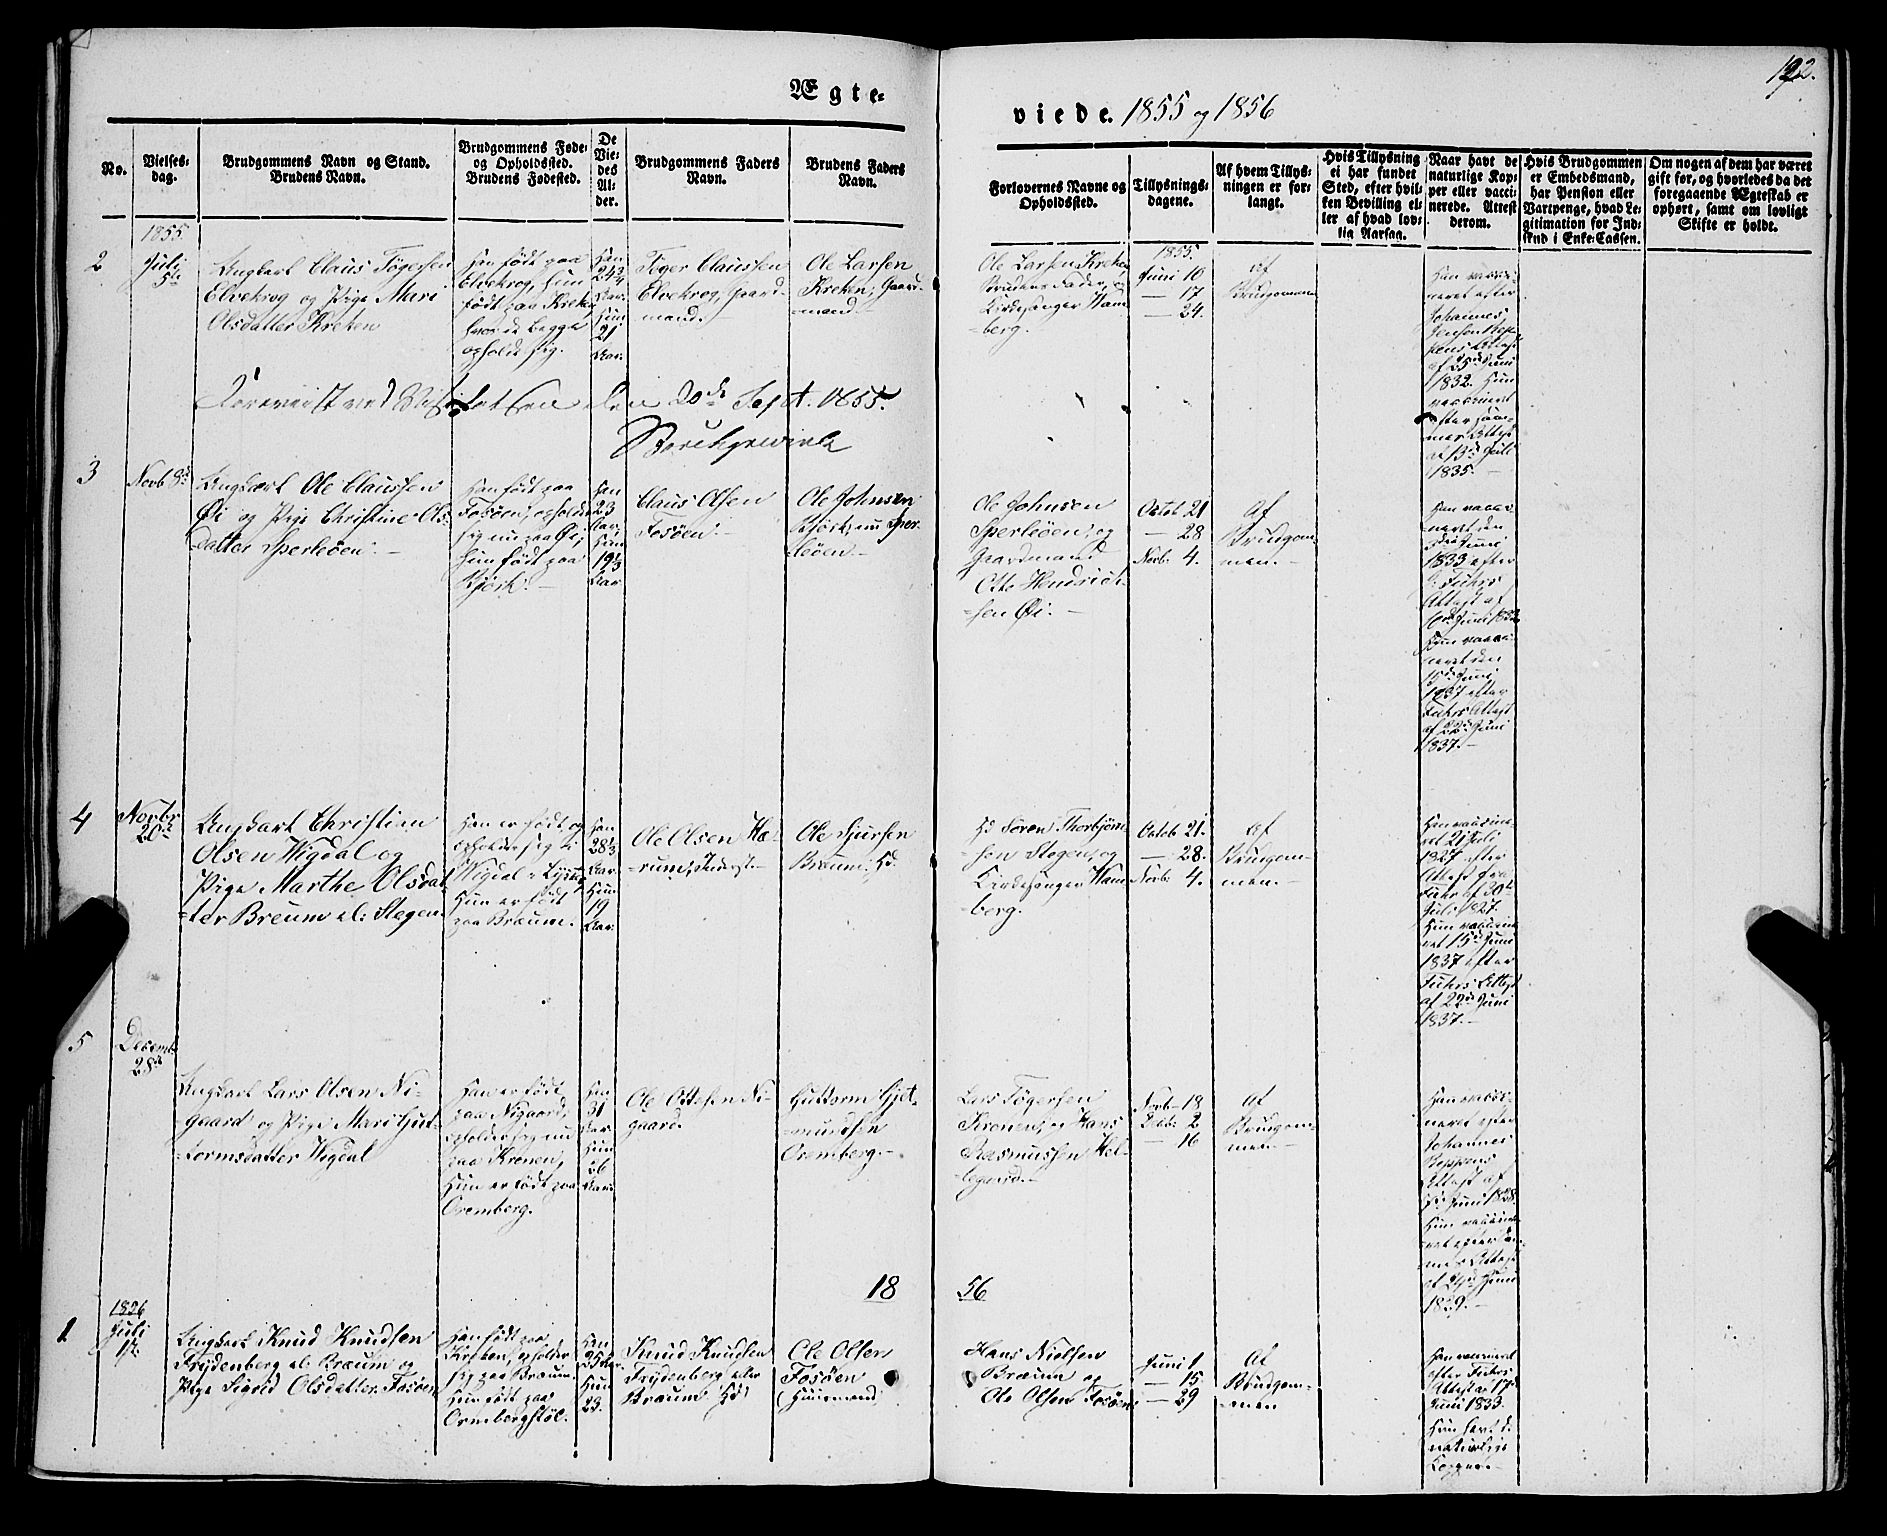 Ægte=
viede. 1855 og 1856
192.
No.
Vielses=
dag.
Brudgommens Navn og Stand.
Brudens Navn.
Brudgommens Føde=
og Opholdssted.
Brudens Fødested.
De
Vie=
des
Al=
der.
Brudgommens Faders
Navn.
Brudens Faders
Navn.
Forlovernes Navne og
Opholdssted.
Tillysnings=
dagene.
Af hvem Tillys=
ningen er for=
langt.
Hvis Tillysning
ei har fundet
Sted, efter hvil=
ken Bevilling el=
ler af hvad lov=
lig Aarsag.
Naar havt de
naturlige Kop=
per eller vacci=
nerede. Attest
derom.
Hvis Brudgommen
er Embedsmand,
har Pension eller
Vartpenge, hvad Le=
gitimation for Ind=
skud i Enke=Cassen.
Om nogen af dem har været
gift før, og hvorledes da det
foregaaende Ægteskab er
ophørt, samt om lovligt
Skifte er holdt.
1855.
2
Juli
5te
Ungkarl Claus Tøgersen
Elvekrog og Pige Mari
Olsdatter Kreken
Han født paa
Elvekrog, hun
født paa Kreken
hvor de begge
opholde sig.
Han
24 3/4
Aar
Hun
21
Aar.
Tøger Claussen
Elvekrog, Gaard=
mand.
Ole Larsen
Kreken, Gaard=
=mand
Ole Larsen Kreken,
Brudens Fader, og
Kirkesanger Ham=
=berg.
1855.
Juni 10
— 17
— 24.
af
Brudgommen
Han vacci=
neret efter
Johannes
Jensen Bøp=
pens Attest
af 25de Juni
1832. Hun
vaccineret
efter samme
mes Attest
af 13de Juli
1835.
Foreviist ved Visitatsen den 20de Sept. 1855.
3
Novb 8de
Ungkarl Ole Claussen
Øi og Pige Christine Ols=
datter Sperleøen. —
Han født paa
Fosøen, opholder
sig nu paa Øi,
hun født paa
Bjørk. —
Han
23
Aar,
Hun
19 1/3
Aar
Claus Olsen
Fosøen. —
Ole Johnsen
Bjørk, nu Sper=
leøen —
Ole Johnsen
Sperleøen, og
Gaardmand
Otto Hendrich=
=sen Øi. —
Octob 21
— 28
Novb: 4.
Af
Brudgom=
men. —
Han vacci=
neret den
Juni
1833 efter
Fuhrs
Attest af
Juni 1833
Hun vacci=
neret den
15de Juni
1837 efter
Fuhrs Attest
af 22de Juni
1837. —
4
Novbr
20de
Ungkarl Christian
Olsen Wigdal og
Pige Marthe Olsdat=
=ter Breum el: Stegen.
Han er født og
opholder sig i
Wigdal i Lyster
Hun er født
paa Bræum.
Han
28 1/3
Aar
Hun
19
Aar.
Ole Olsen Hæ=
rum, Inderst. —
Ole Sjursen
Bræum, Hd.
Hd Søren Thorbjørn=
sen Stegen, og
Kirkesanger Ham=
=berg.
Octob 21.
— 28.
Novb: 4.
af
Brudgom=
men. —
Han vaccine=
ret 21 Juli
1827 efter
Attest fra
Fuhr af 30te
Juli 1827.
Hun vaccine=
ret 15de Juni
1837 efter
Fuhrs Attest
af 22de Juni
1837. —
5
Decemb.
28de
Ungkarl Lars Olsen Ni=
gaard og Pige Mari Gut=
=tormsdatter Wigdal
Han er født
paa Nigaard,
opholder sig nu
paa Kronen,
Hun er født paa
Oremberg.
Han
31
Aar
Hun
26
Aar.
Ole Ottesen Ni=
gaard.
Guttorm Hjel=
=mundsen
Oremberg. —
Lars Tøgersen
Kronen, og Hans
Rasmussen Hel=
legaard. —
Novb— 18
Decb: 2
— 16
af
Brudgom=
men. —
Han vacci=
neret efter
Johannes
Bøppens
Attest af
Juni 1828.
Hun vaccine=
ret efter sam=
mes Attest
af Juni
1829. —
18
56
1856
1
Juli
17.
Ungkarl Knud Knudsen
Frydenberg el: Bræum og
Pige Sigrid Olsdatter Fosøen
Han født paa
Kreken, opholder
sig paa Bræum.
Hun født paa
Ormbergstøl.
Han
25 Aar.
Hun
23.
Knud Knudsen
Frydenberg eller
Bræum Hd
Ole Olsen
Fosøen
(Huusmand)
Hans Nielsen
Bræum og
Ole Olsen Fosøen
Juni 1
— 15
— 29
Af
Brudgom=
=men
Han vaccineret
efter Fuhrs
Attest af 17de
Juni 1833.
Hun havt de
naturlige
Kopper. —